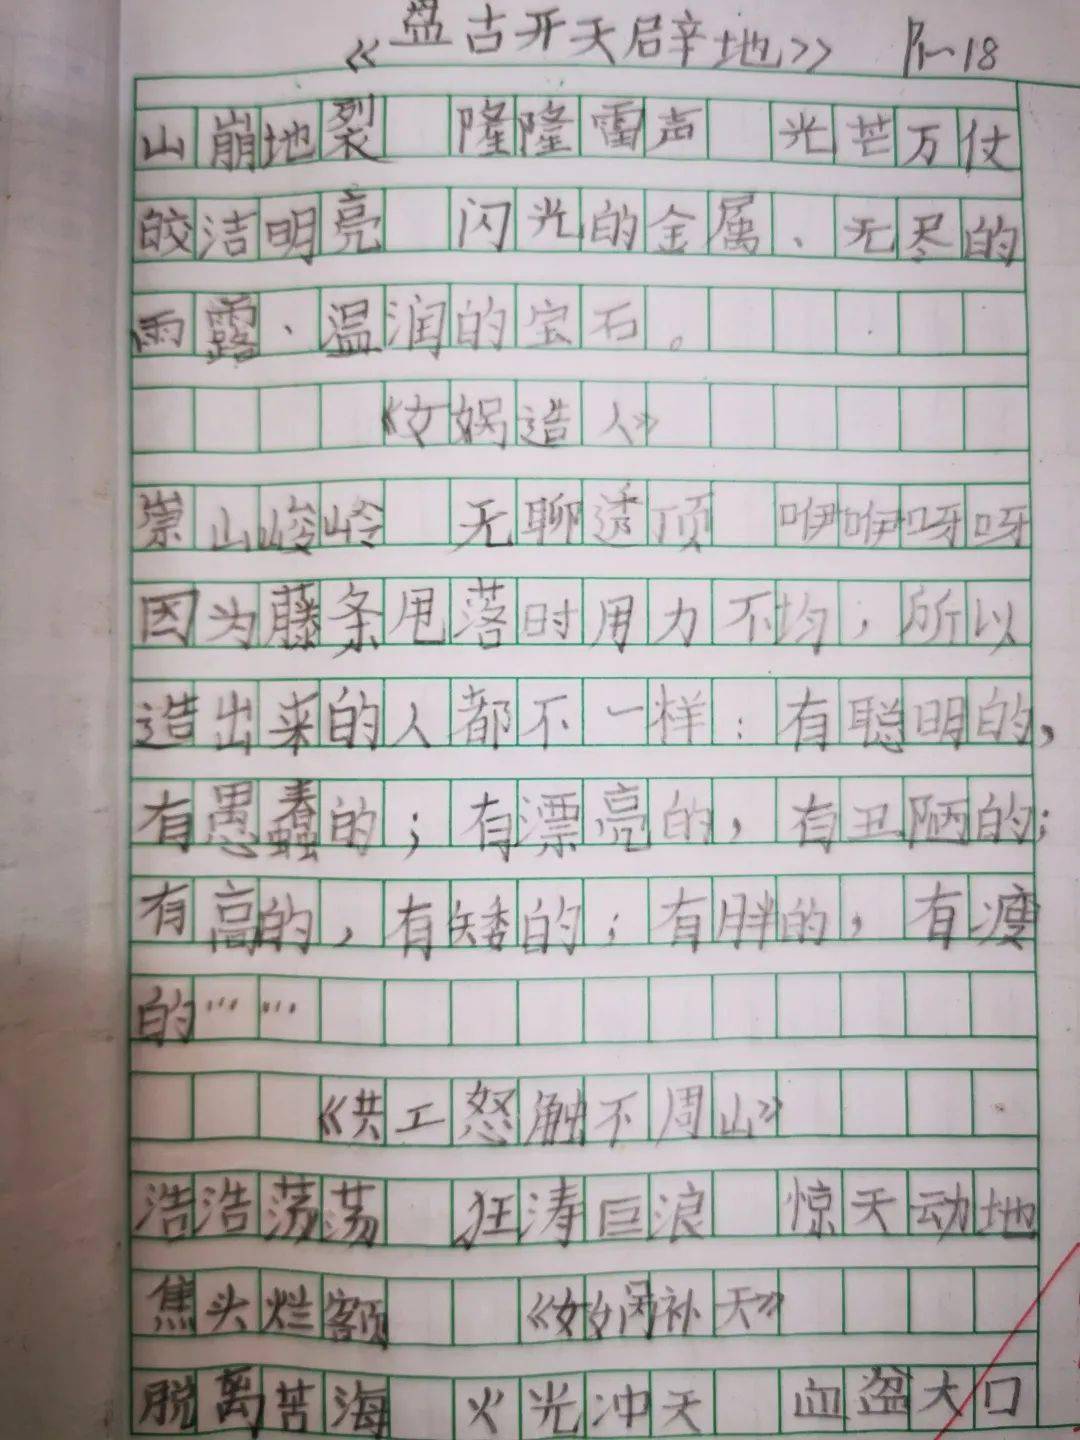 《盘古开天辟地》 P1-18
山崩地裂 隆隆雷声 光芒万仗
皎洁明亮 闪光的金属、无尽的
雨露、温润的宝石。
《女娲造人》
崇山峻岭 无聊透顶 咿咿呀呀
因为藤条甩落时用力不均，所以
造出来的人都不一样：有聪明的，
有愚蠢的；有漂亮的，有丑陋的；
有高的，有矮的；有胖的，有瘦
的……
《共工怒触不周山》
浩浩荡荡 狂涛巨浪 惊天动地
焦头烂额 《女娲补天》
脱离苦海 火光冲天 血盆大口